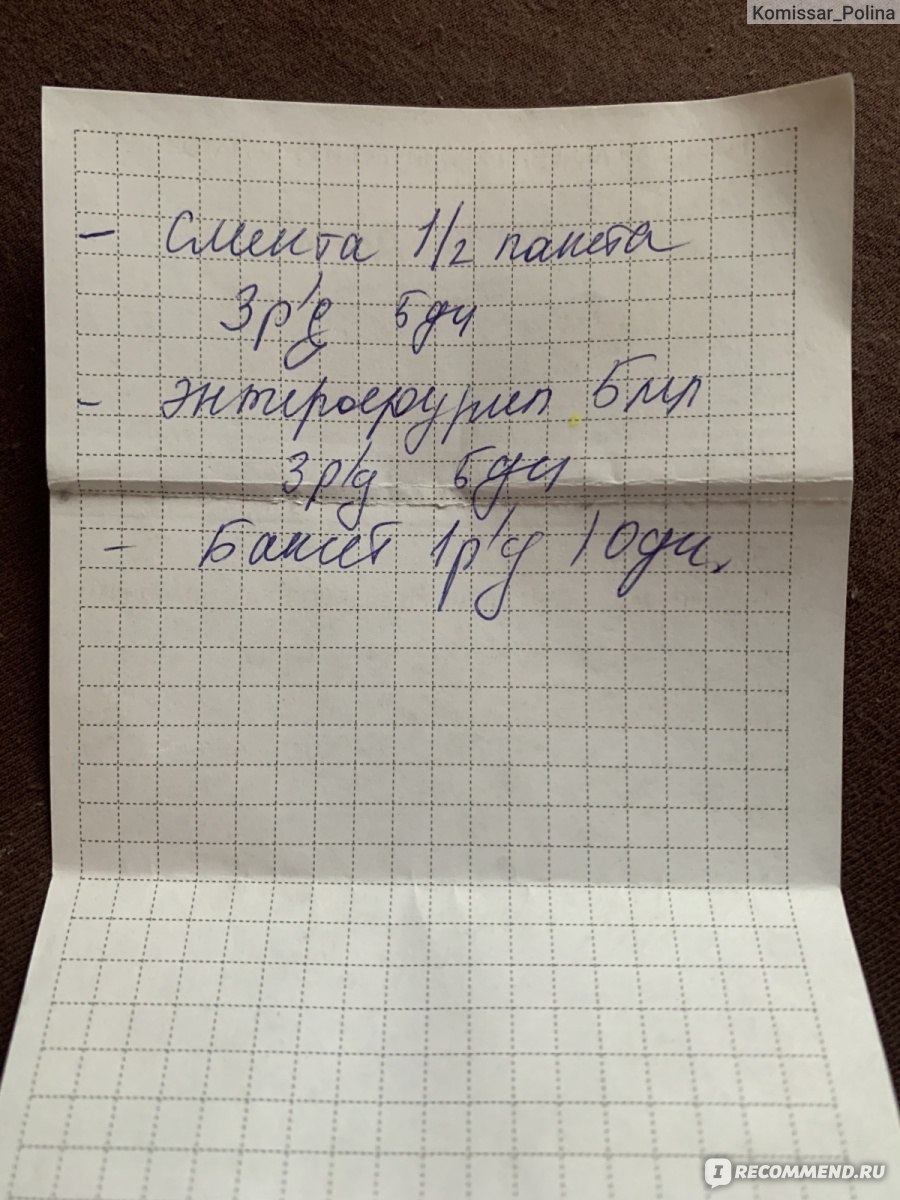 Komissar_Polina
- Смекта 1/2 пакета
3 р/д 5 дн
- Энтерофурил 5 мл
3 р/д 5 дн
- Баксет 1 р/д 10 дн.
IRECOMMEND.RU